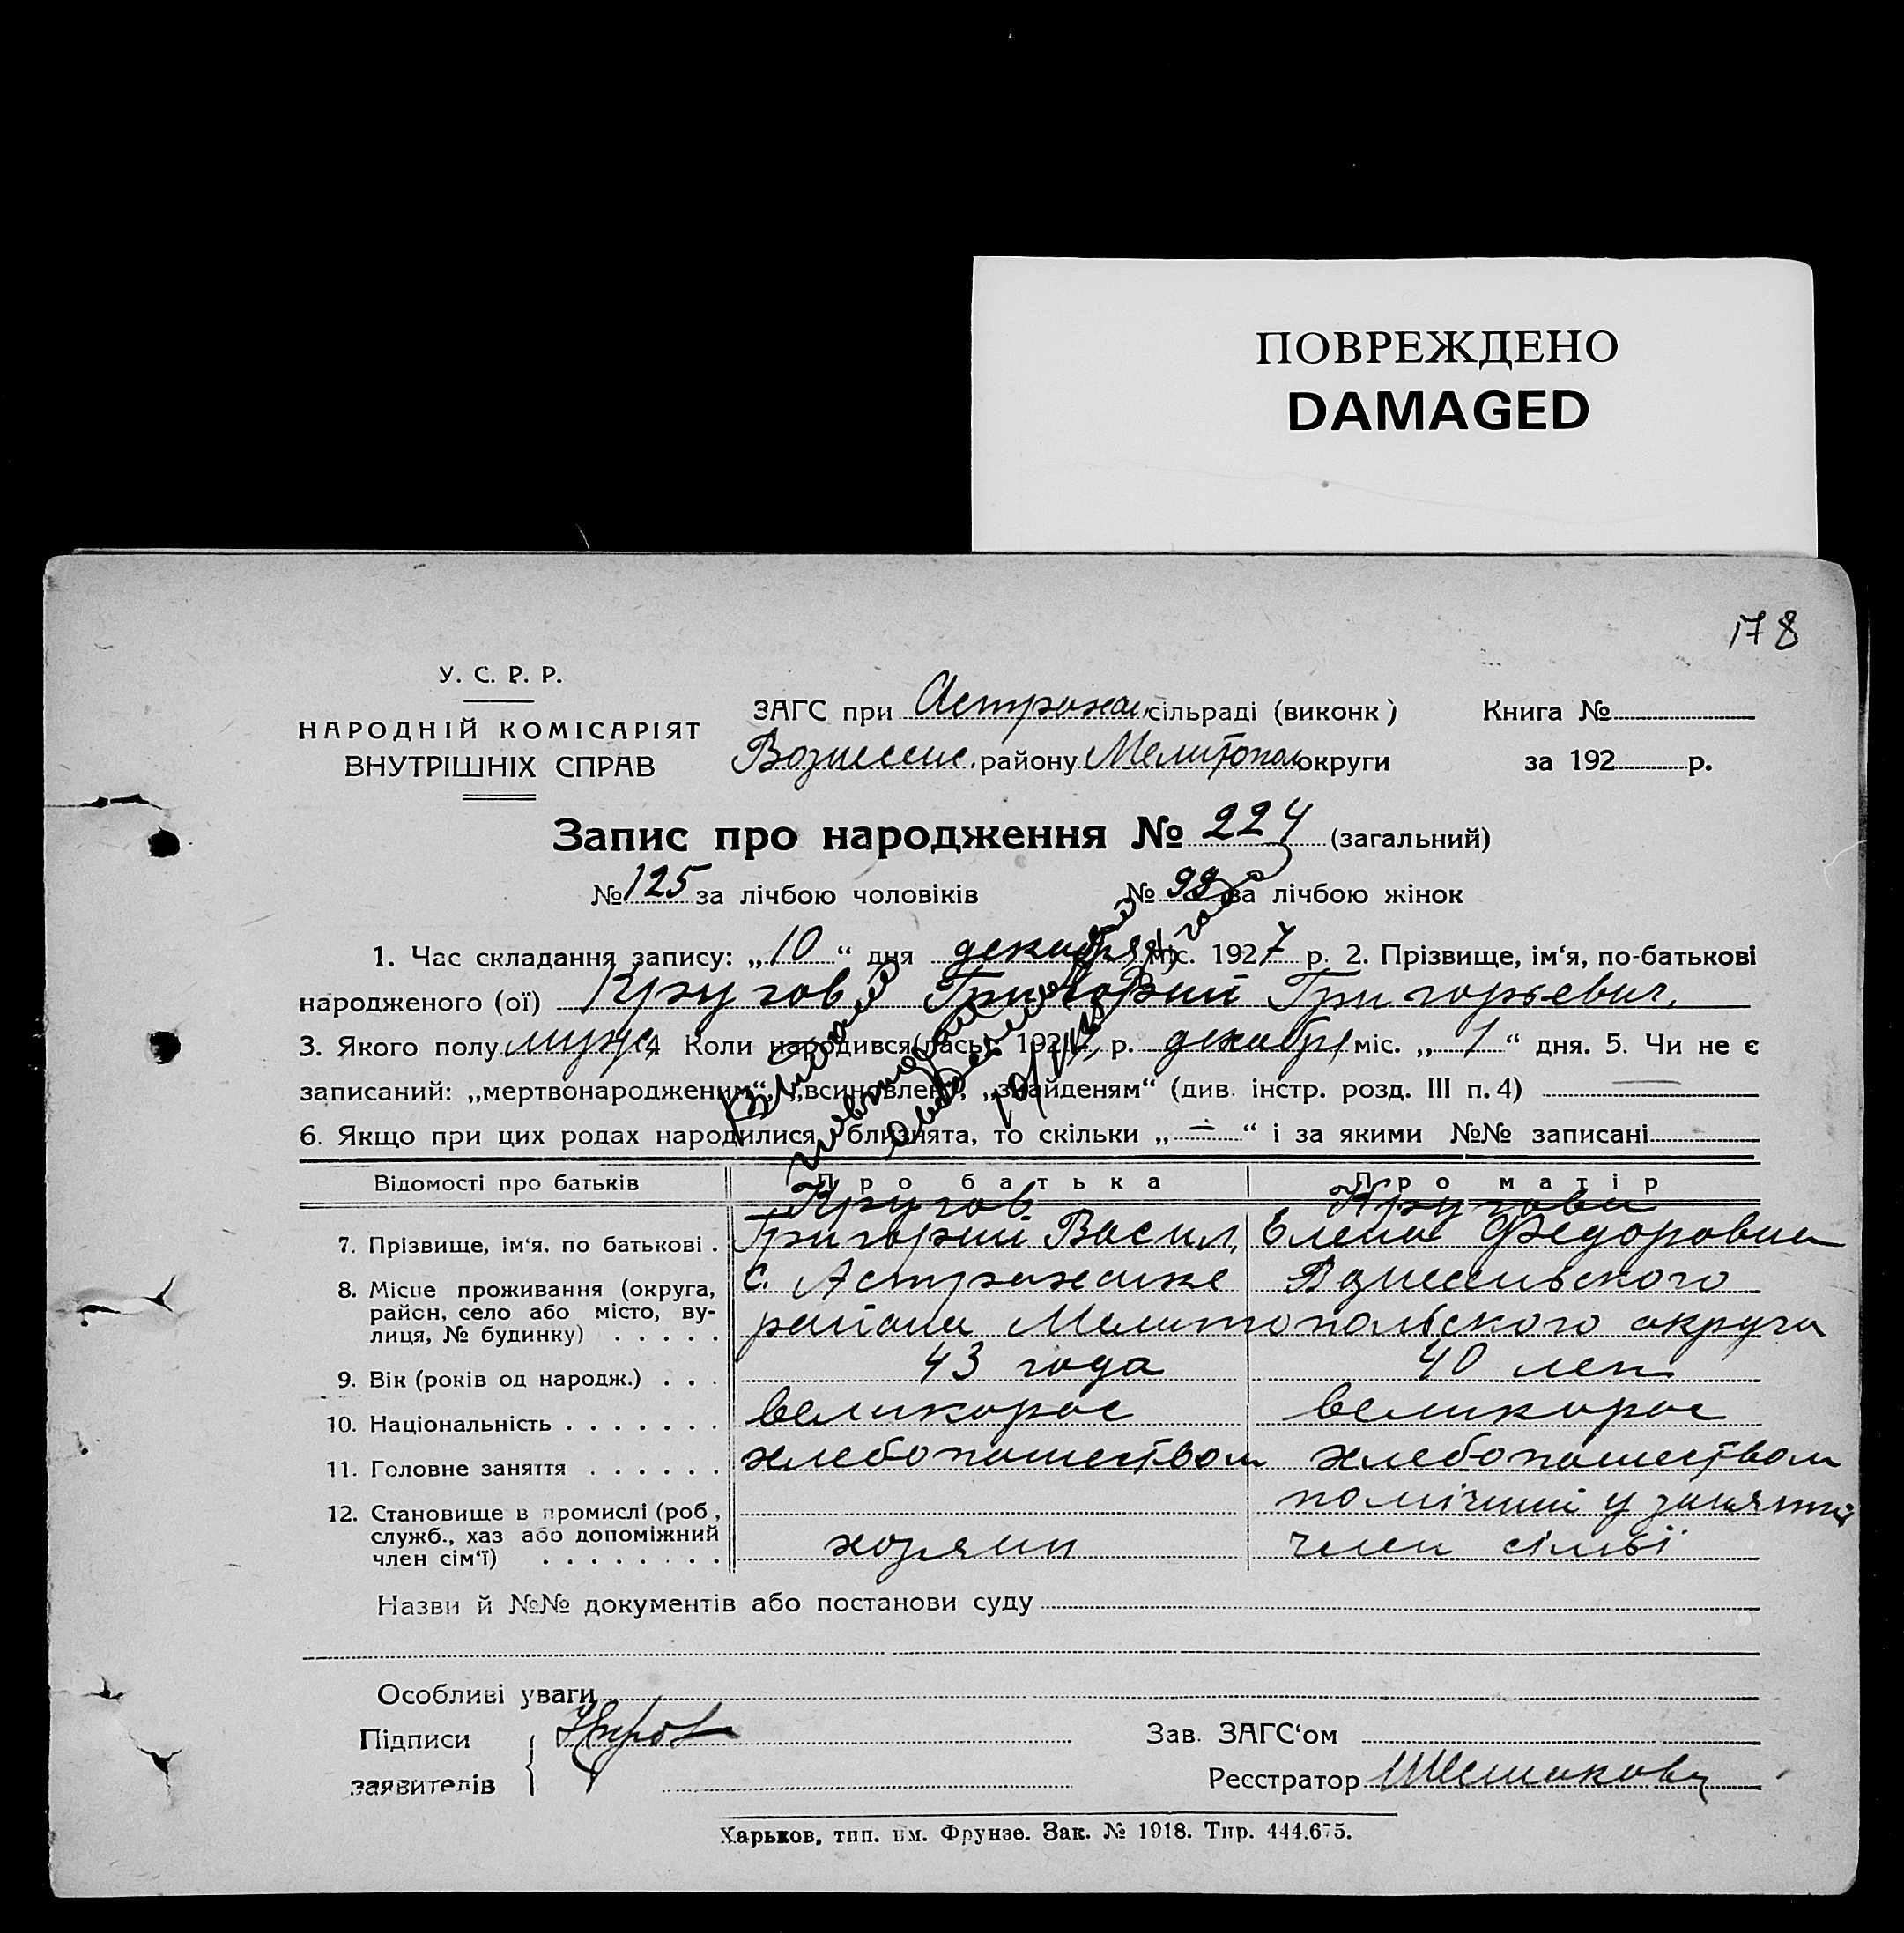 ПОВРЕЖДЕНО
DAMAGED
178
У. С. Р. Р.
НАРОДНІЙ КОМІСАРІЯТ
ВНУТРІШНІХ СПРАВ
ЗАГС при Астрахан сільраді (виконк)
Вознесенс. району Мелитопол округи
Книга №
за 192 р.
Запис про народження № 224 (загальний)
№ 125 за лічбою чоловіків № 99 за лічбою жінок
1. Час складання запису: „ 10 “ дня декабря міс. 1927 р. 2. Прізвище, ім‘я, по-батькові
народженого (ої) Кругов Григорий Григорьевич.
3. Якого полу муж. 4 Коли народився(лась) 192 р. декабря міс. „ 1 “ дня. 5. Чи не є
записаний: „мертвонародженим“, „всиновлен“, „знайденям“ (див. інстр. розд. III п. 4) —
6. Якщо при цих родах народилися близнята, то скільки „ — “ і за якими №№ записані
Відомості про батьків Про батька Про матір
7. Прізвище, ім‘я, по батькові . Кругов Григорий Васил. Кругова Елена Федоровна
8. Місце проживання (округа, район, село або місто, вулиця, № будинку) . . . . . с. Астраханке Вознесенського
района Мелитопольского округа
9. Вік (років од народж.) . . . 43 года 40 лет
10. Національність . . . . . . . великорос великорос
11. Головне заняття . . . . . . хлебопашеством хлебопашеством
12. Становище в промислі (роб, служб., хаз або допоміжний член сім‘ї) . . . . . . . . хозяин член сімьї
Назви й №№ документів або постанови суду
Особливі уваги
Підписи
заявителів
Зав. ЗАГС‘ом
Реєстратор
Харьков, тип. им. Фрунзе. Зак. № 1918. Тир. 444.675.